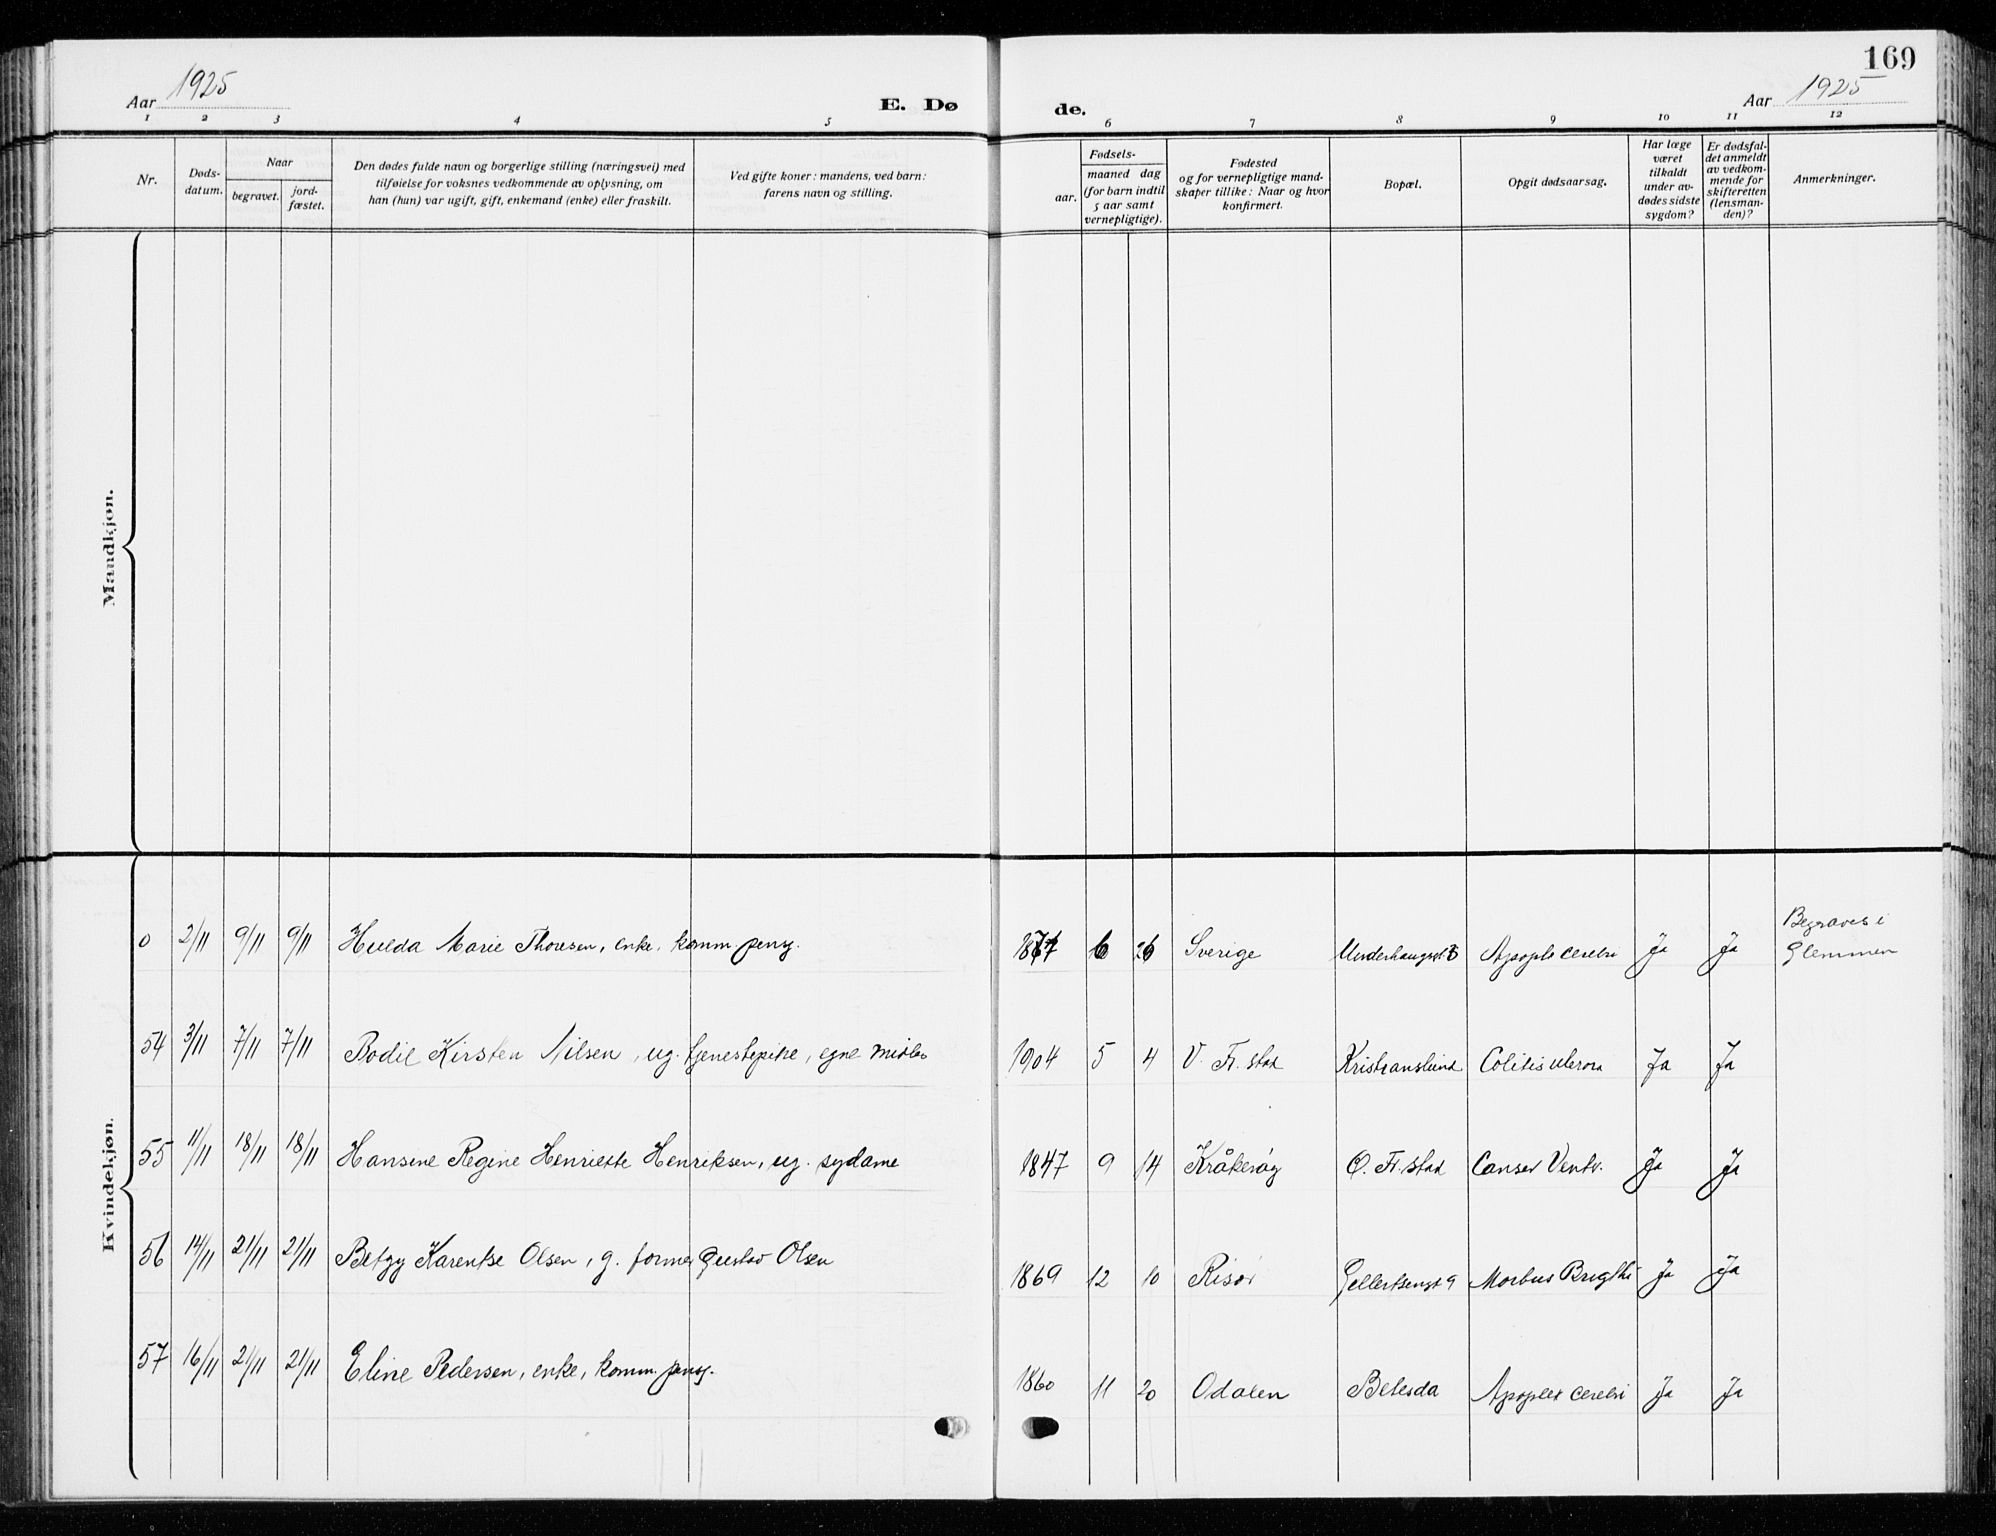 169
Aar 1925
E. Dø
de.
Aar 1925
1 2 3 4 5 6 7 8 9 10 11 12
Nr.
Døds-
datum.
Naar
begravet.
jord-
fæstet.
Den dødes fulde navn og borgerlige stilling (næringsvei) med
tilføielse for voksnes vedkommende av oplysning, om
han (hun) var ugift, gift, enkemand (enke) eller fraskilt.
Ved gifte koner: mandens, ved barn:
farens navn og stilling.
aar.
Fødsels-
maaned dag
(for barn indtil
5 aar samt
vernepligtige).
Fødested
og for vernepligtige mand-
skaper tillike: Naar og hvor
konfirmert.
Bopæl.
Opgit dødsaarsag.
Har læge
været
tilkaldt
under av-
dødes sidste
sygdom?
Er dødsfal-
det anmeldt
av vedkom-
mende for
skifteretten
(lensman-
den)?
Anmerkninger.
Mandkjøn.
Kvindekjøn.
0 2/11 9/11 9/11 Hulda Marie Thoresen, enke, komm. pensj. 6 Sverige Apople cerebri Ja Ja Begraves i
Glemmen
54 3/11 7/11 7/11 Bodil Kirsten Nilsen, ug. tjenestepike, egne midler 1904 5 4 V. Fr.stad Kristianslund Colitis ulcerosa Ja Ja
55 11/11 18/11 18/11 Hansine Regine Henriette Henriksen, ug. sydame 1847 9 14 Kråkerøy O. Fr.stad Canser Ventr. Ja Ja
56 14/11 21/11 21/11 Betzy Karentse Olsen, g. former Gustav Olsen 1869 12 10 Risør Gellertsengt 9 Morbus Brigthi Ja Ja
57 16/11 21/11 21/11 Eline Pedersen, enke, komm. pensj. 1860 11 20 Odalen Betesda Apoplex cerebri Ja Ja